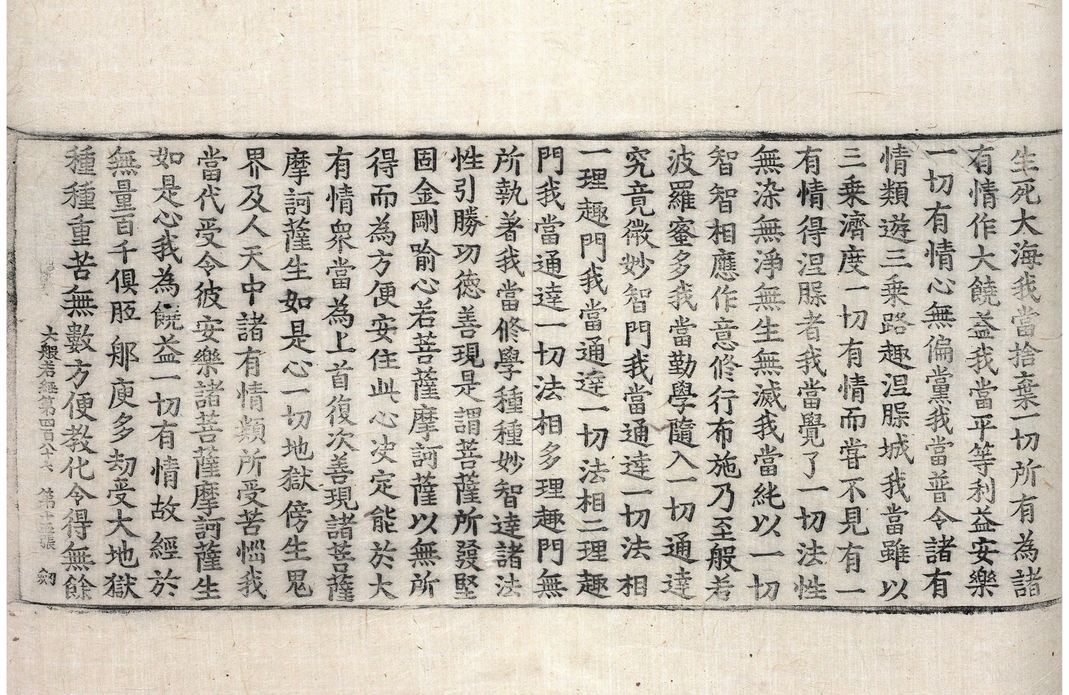 生死大海我當捨棄一切所有為諸
有情作大饒益我當平等利益安樂
一切有情心無偏黨我當普令諸有
情類遊三乗路趣涅槃城我當雖以
三乗濟度一切有情而甞不見有一
有情得涅槃者我當覺了一切法性
無染無淨無生無滅我當純以一切
智智相應作意修行布施乃至般若
波羅蜜多我當勤學隨入一切通達
究竟微妙智門我當通達一切法相
一理趣門我當通達一切法相二理趣
門我當通達一切法相多理趣門無
所執著我當修學種種妙智達諸法
性引勝功德善現是謂菩薩所發堅
固金剛喻心若菩薩摩訶薩以無所
得而為方便安住此心决定能於大
有情衆當為上首復次善現諸菩薩
摩訶薩生如是心一切地獄傍生鬼
界及人天中諸有情類所受苦惱我
當代受令彼安樂諸菩薩摩訶薩生
如是心我為饒益一切有情故經於
無量百千俱胝那庾多劫受大地獄
種種重苦無數方便教化令得無餘
大般若經第四百八十六 第 張 劒